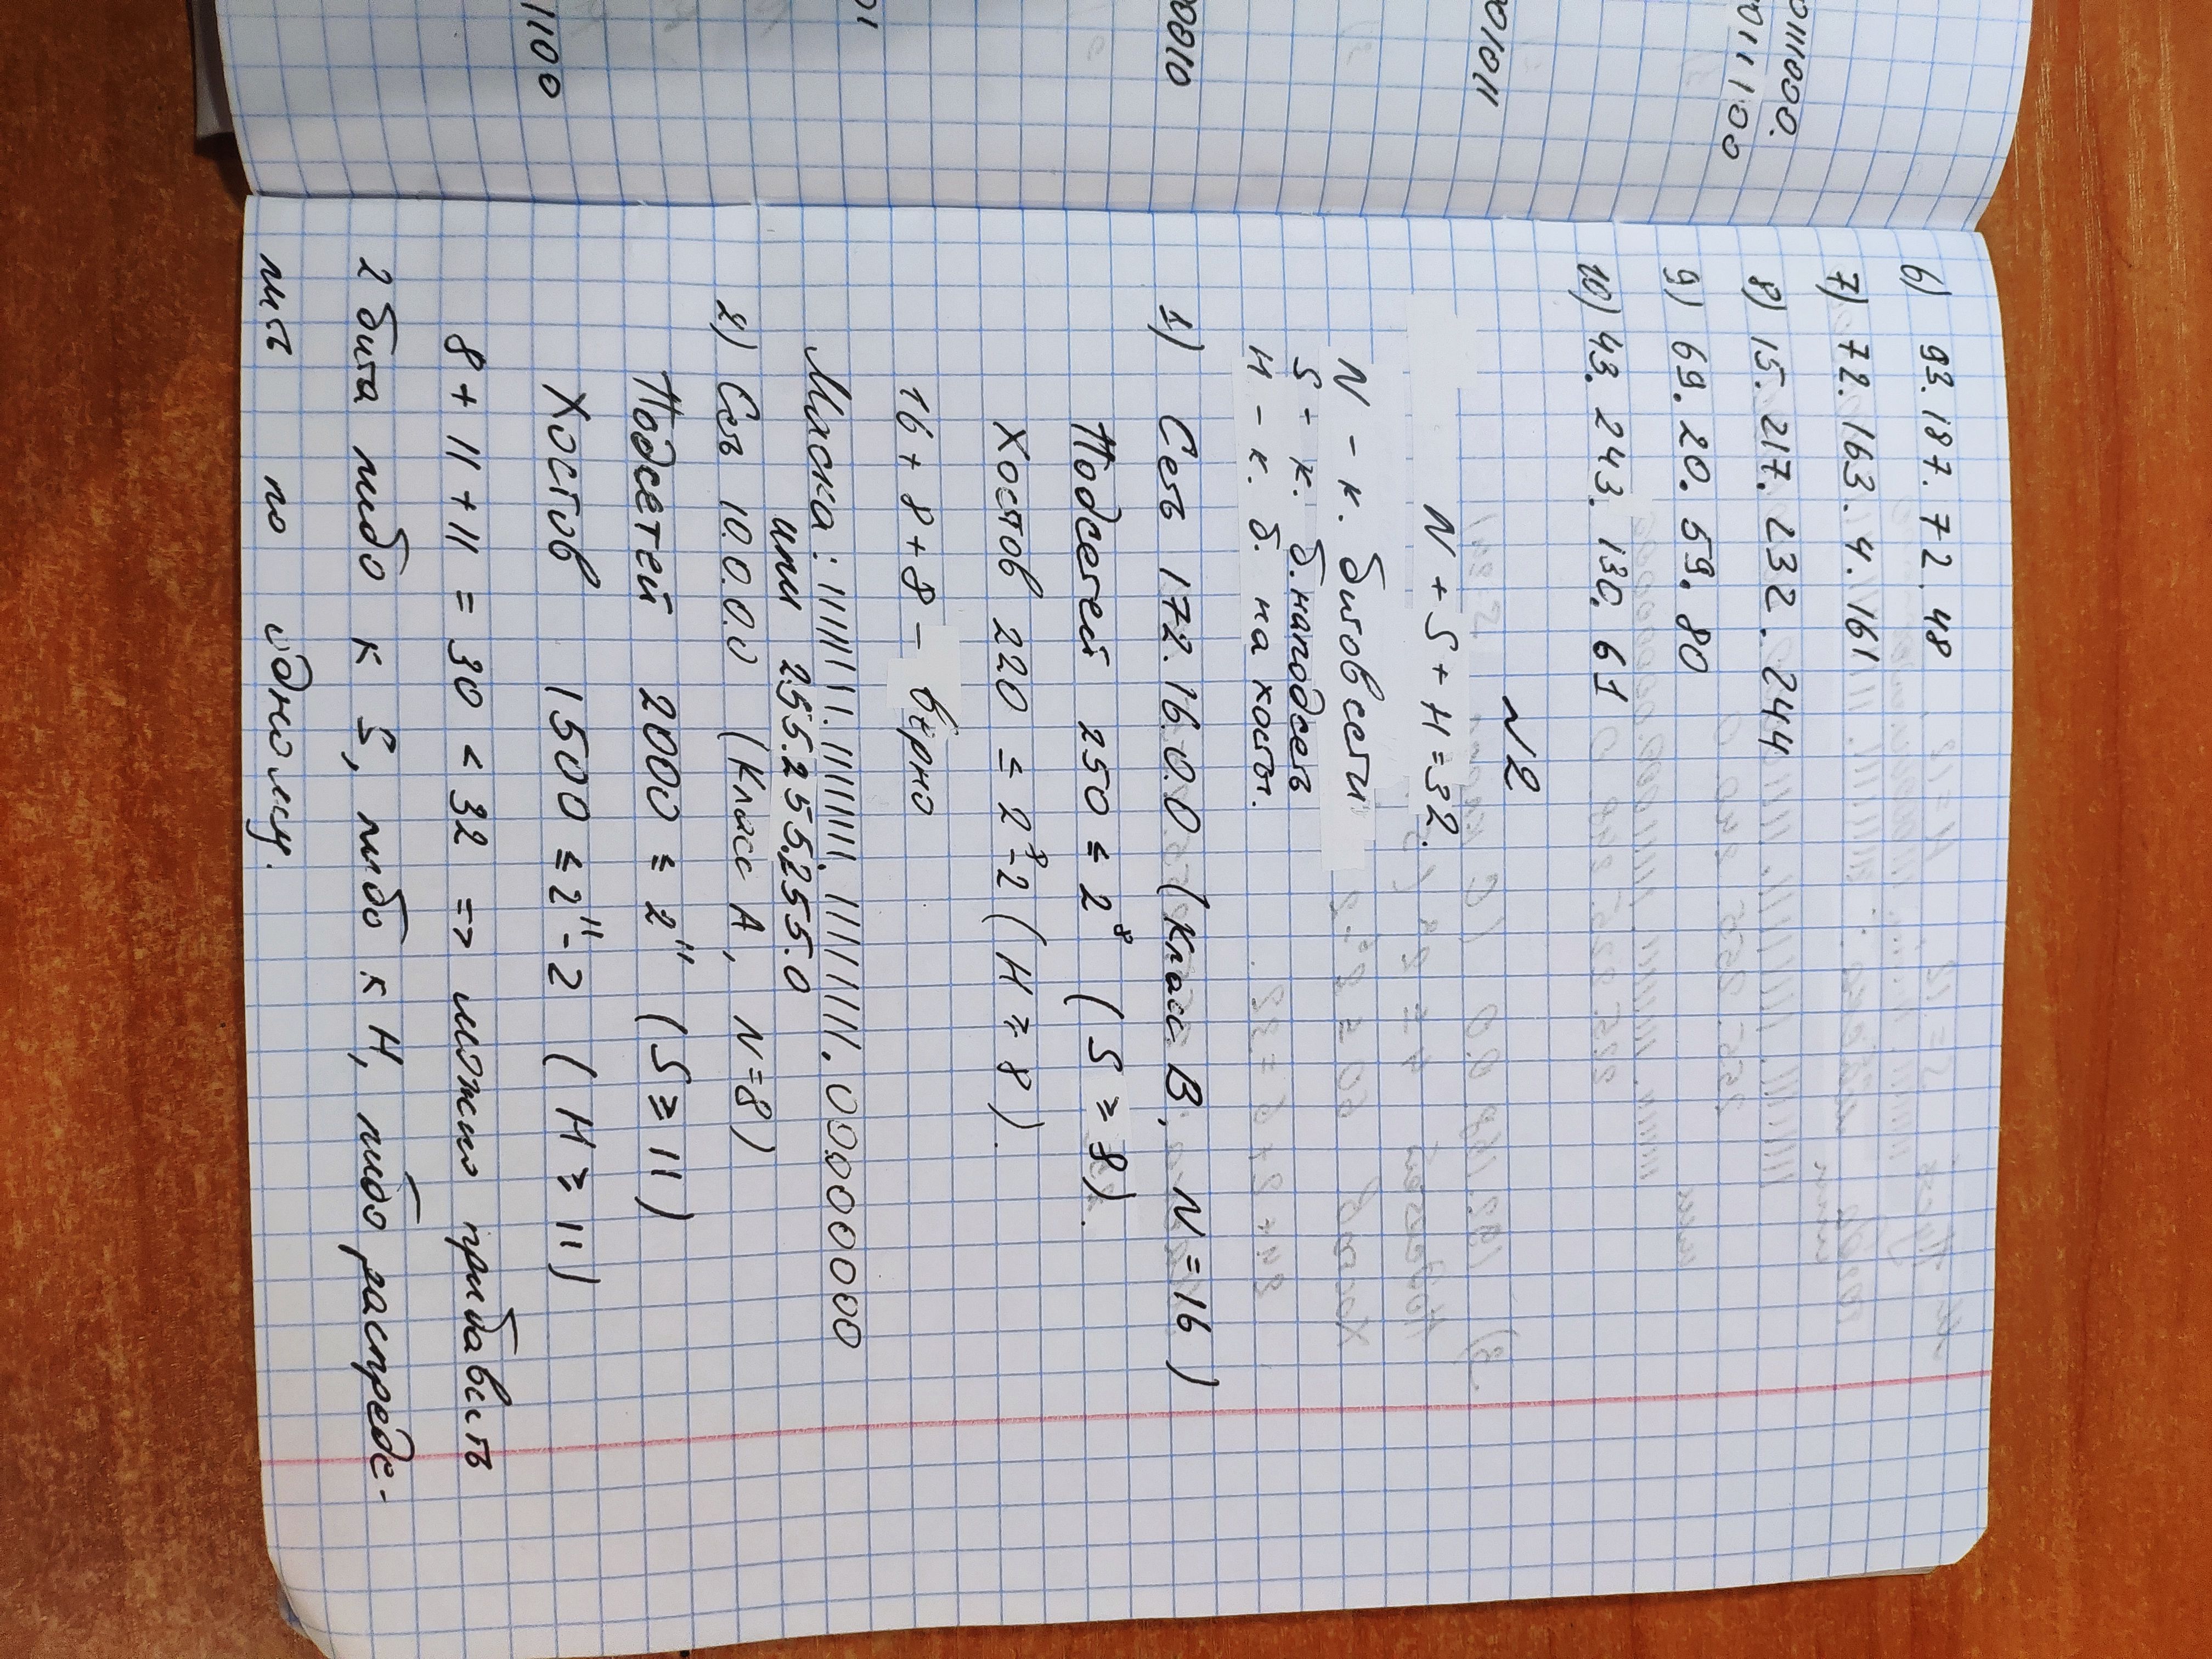 11100
01
00010
001011
0011100
01111000.
6) 93.187.72.48
7) 72.163.4.161
8) 15.217.232.244
9) 69.20.59.80
10) 43.243.130.61
N2
N + S + H = 32.
N - к. битов сети
S - к. б. на подсеть
H - к. б. на хост.
1) Сеть 172.16.0.0 (Класс B, N = 16)
Подсетей 250 ≤ 2⁸ (S ≥ 8).
Хостов 220 ≤ 2⁸-2 (H ≥ 8).
16 + 8 + 8 - верно
Маска: 11111111.11111111.11111111.00000000
или 255.255.255.0
2) Сеть 10.0.0.0 (Класс A, N=8)
Подсетей 2000 ≤ 2¹¹ (S ≥ 11)
Хостов 1500 ≤ 2¹¹-2 (H ≥ 11)
8 + 11 + 11 = 30 < 32 => можно прибавить
2 бита либо к S, либо к H, либо распреде-
лить по одному.